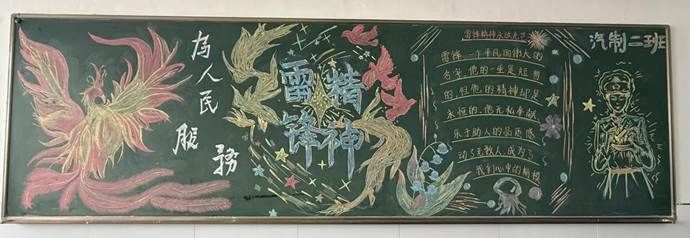 为人民服务
雷锋
精神
雷锋精神永放光芒
雷锋,一个平凡而伟大的
名字,他的一生是短暂
的,但他的精神却是
永恒的,他无私奉献
乐于助人的品质感
动了无数人,成为了
我们心中的楷模
汽制二班